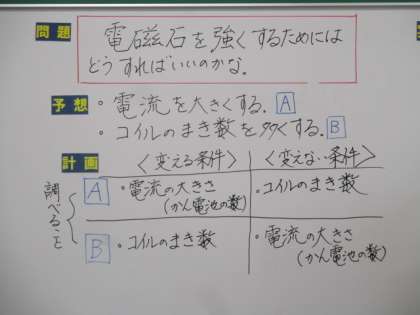 問題
電磁石を強くするためには
どうすればいいのかな。
予想
・電流を大きくする。A
・コイルのまき数を多くする。B
計画
<変える条件>
<変えない条件>
調べること
A
・電流の大きさ
(かん電池の数)
・コイルのまき数
B
・コイルのまき数
・電流の大きさ
(かん電池の数)